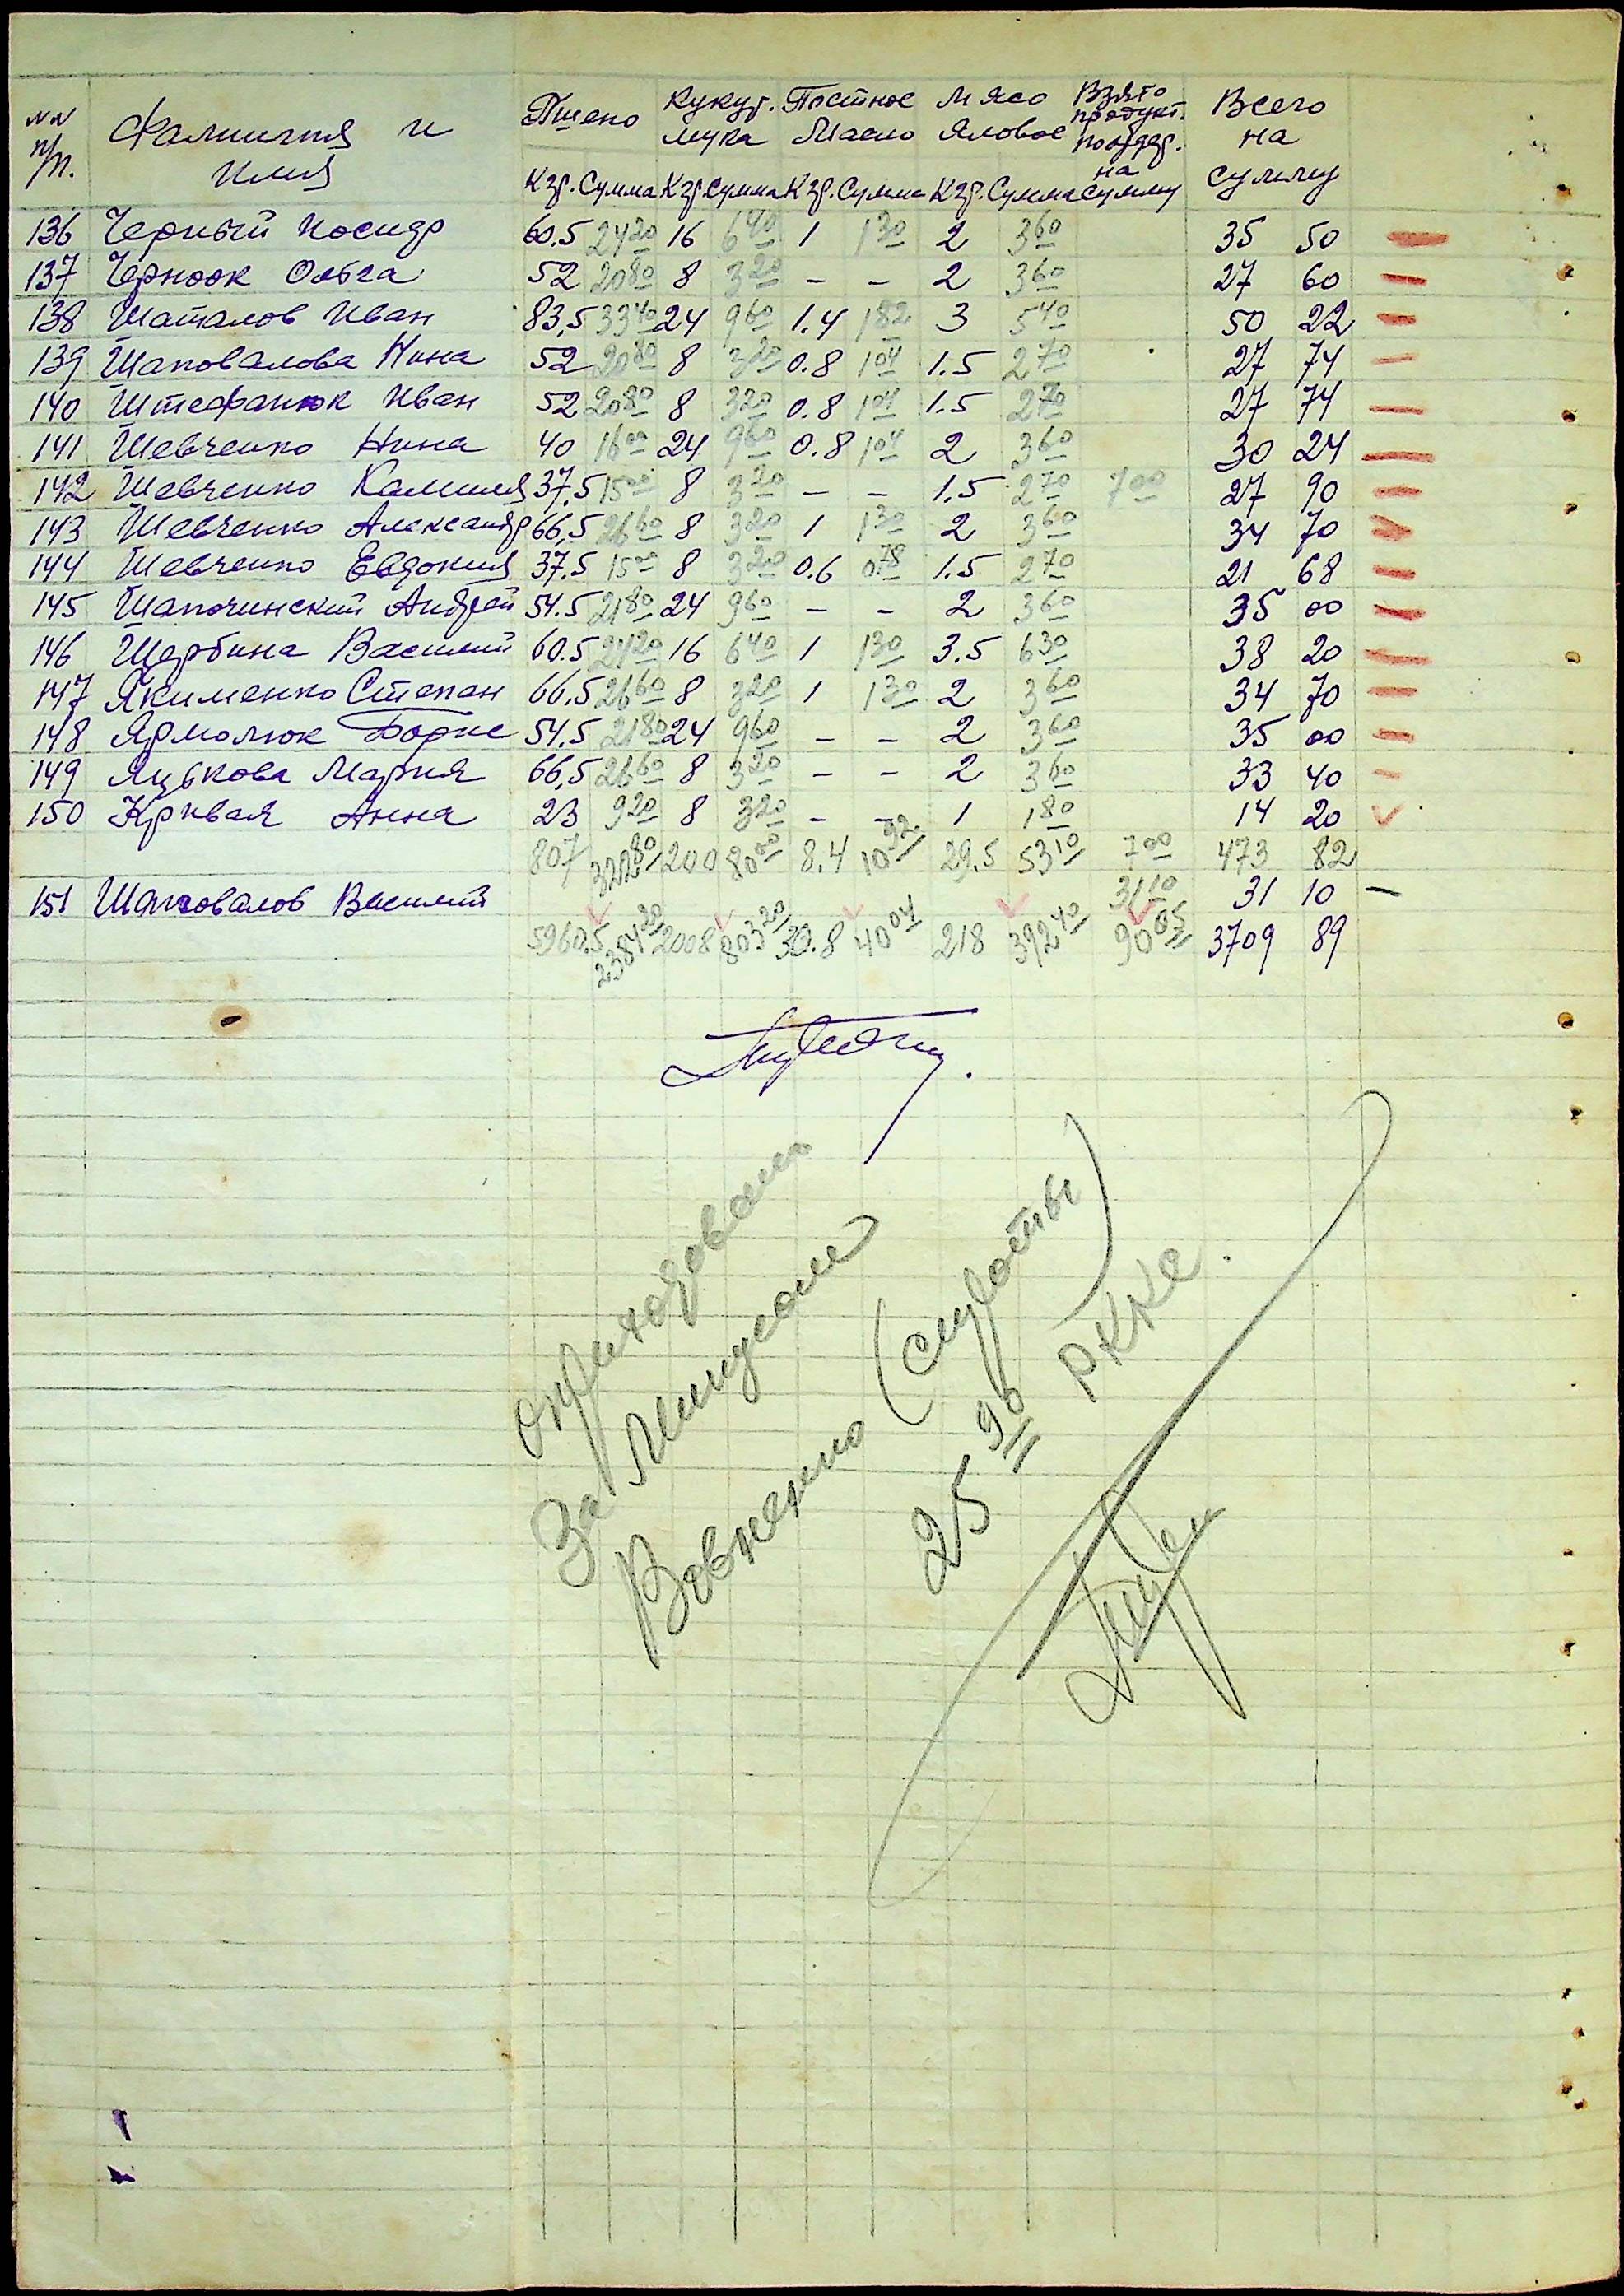 NN п/п. Фамилия и имя Пшено Кукур. мука Постное масло Мясо яловое Взято продукт. на сумму Всего на сумму
Кгр. Сумма Кгр. Сумма Кгр. Сумма Кгр. Сумма
136 Черный Иосидр 60.5 24 20 16 6 40 1 1 30 2 3 60 35 50
137 Черноок Ольга 52 20 80 8 3 20 – – 2 3 60 27 60
138 Шаталов Иван 83,5 33 40 24 9 60 1.4 1 82 3 5 40 50 22
139 Шаповалова Нина 52 20 80 8 3 20 0.8 1 04 1.5 2 70 27 74
140 Штефанюк Иван 52 20 80 8 3 20 0.8 1 04 1.5 2 70 27 74
141 Шевченко Нина 40 16 00 24 9 60 0.8 1 04 2 3 60 30 24
142 Шевченко Камилия 37,5 15 00 8 3 20 – – 1.5 2 70 7 00 27 90
143 Шевченко Александр 66,5 26 60 8 3 20 1 1 30 2 3 60 34 70
144 Шевченко Евдокия 37.5 15 00 8 3 20 0.6 0.78 1.5 2 70 21 68
145 Шапочинский Андрей 54.5 21 80 24 9 60 – – 2 3 60 35 00
146 Щербина Василий 60.5 24 20 16 6 40 1 1 30 3.5 6 30 38 20
147 Якименко Степан 66,5 26 60 8 3 20 1 1 30 2 3 60 34 70
148 Ярмолюк Борис 54,5 21 80 24 9 60 – – 2 3 60 35 00
149 Яцькова Мария 66,5 26 60 8 3 20 – – 2 3 60 33 40
150 Кривая Анна 23 9 20 8 3 20 – – 1 1 80 14 20
807 322 80 200 80 00 8.4 10 92 29.5 53 10 7 00 473 82
151 Шаповалов Василий 31 10 31 10 –
5960.5 2384 20 2008 803 20 30.8 40 04 218 392 40 90 05 3709 89
оприходовать
За
25 90 РККа.